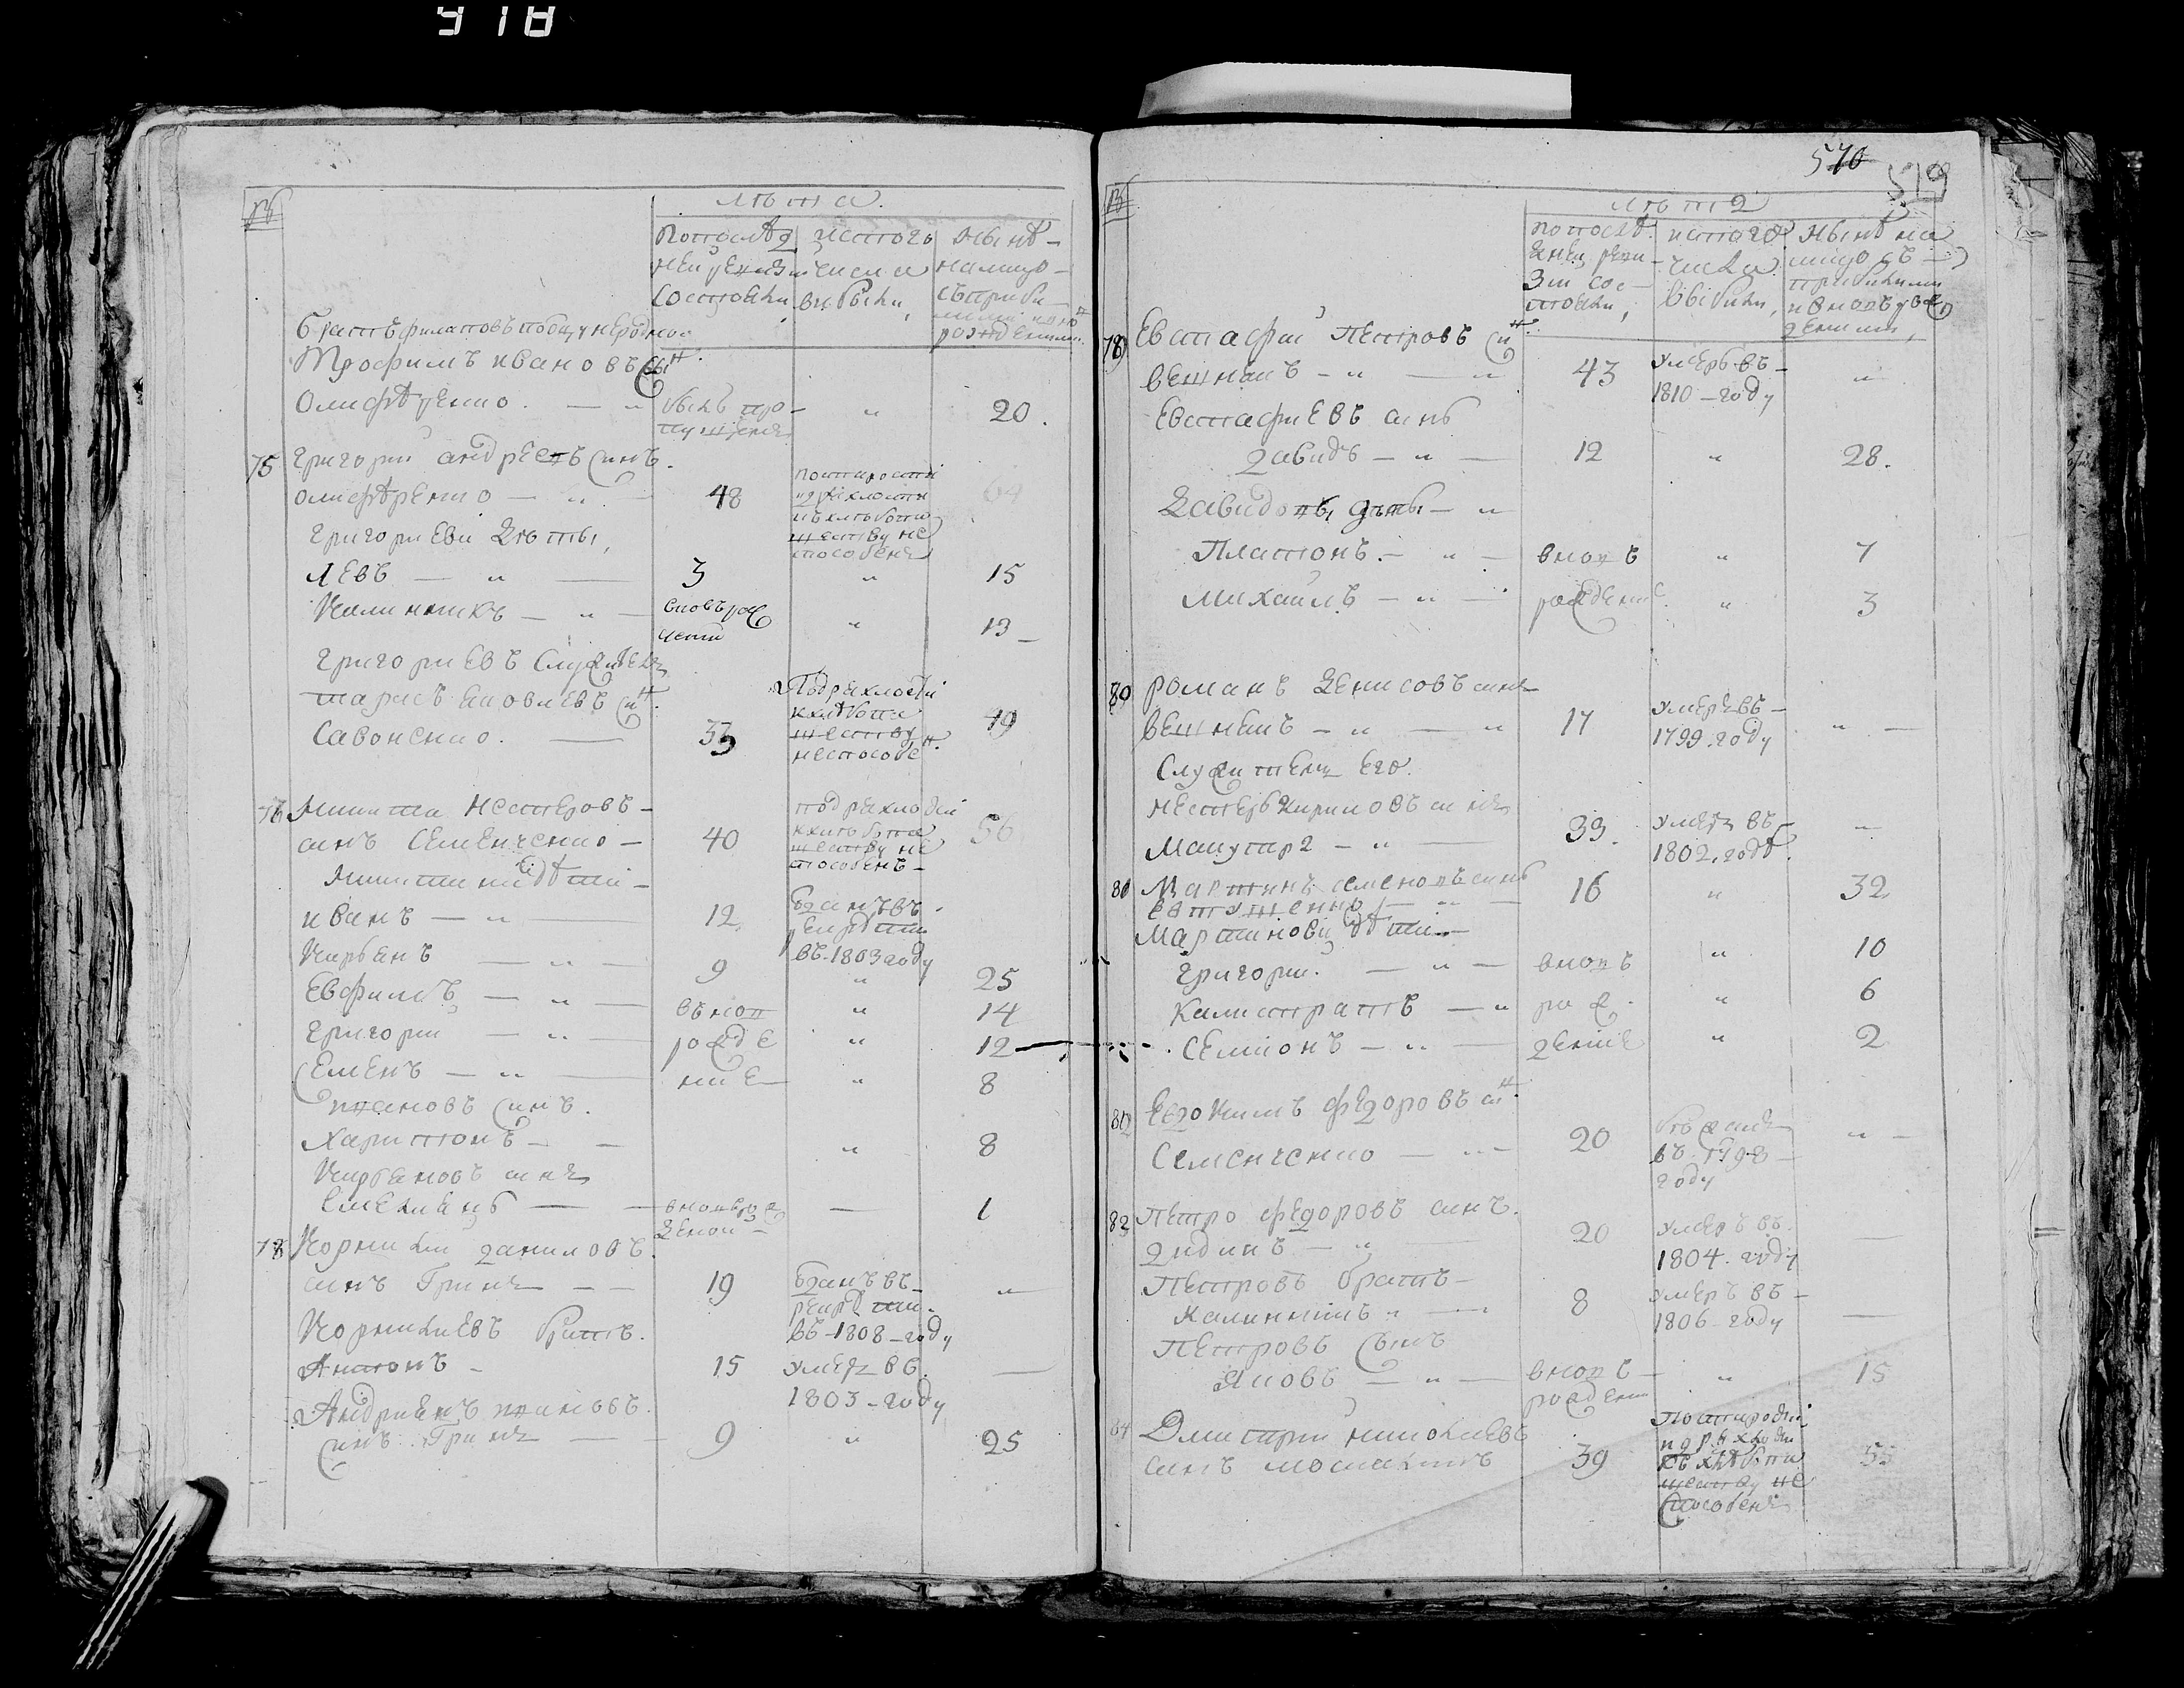 518
№
лѣта.
После䄭
ней ревизіи
состояли,
исъ того
числа
выбыли,
Нынѣ
налицо
съ прибы
лыми и но
рожденными
Братъ филатовъ побщу неродной
Трофимъ ивановъ сынъ
Олифѣренко. — „
былъ про-
пущенъ
„
20.
75 Григорий андреевъ синъ.
олифѣренко — „ —
48
постарости
идряхлости
къ хлѣбопа
шеству не
способенъ
64
григориеви дѣты,
Левъ — „ —
3
„
15
Калиникъ — „ —
вновъ рож
„
13 —
григориевъ служитель
тарасъ яковлевъ синъ.
Савоненко. —
33
Подряхлости
кхлѣбопа
шеству
неспособенъ.
49
76 Микита нестеровъ —
синъ Семенченко —
40
подряхлости
кхлѣбопа
шеству не
способенъ —
56
Микитини дѣти —
иванъ — „ —
12.
взанъ въ
рекрути
въ 1803 году
Кирьянъ — „ —
9
„
25
Евфимъ — „ —
вновъ
„
14
григорий — „ —
рожде
„
12
Семенъ — „ —
ние —
„
8
ивановъ синъ.
Харитонъ — —
„
8
Кирьяновъ синъ
Емельянъ — —
вновърож
деной —
—
1
78 Корнилий даниловъ.
синъ Гринь — —
19
взанъ въ
рекрути.
въ 1808 — году
„
Корнилиевъ братъ.
Антонъ —
15
умеръ въ.
1803 — году
—
Андриянъ ивановъ.
синъ. Гринь —
9
„
25
570
519
№
лѣта
после䄭
дней реви-
зіи сос-
тояли,
исъ того
числа
выбили,
Нынѣ на
лицо съ
прибилими
и вновъ рож
деними,
79 Евстафий Петровъ синъ.
вешнякъ — „ — „
43
умеръ въ —
1810 — году
„
Евстафиевъ синъ
давидъ — „ —
12
„
28.
Давидовы дѣты — „
Платонъ. — „ —
вновъ
„
7
Михаилъ — „ —
рождение.
„
3
80 романъ денисовъ синъ
вешнякъ — „ — „
17
умеръ въ —
1799. году
„ —
Служитель его.
нестеръ кириловъ синъ
Мацутра — „ —
33.
умеръ въ
1802. годѣ.
„
81 Мартинъ семеновъ синъ
— „ —
16
„
32.
Мартинови дѣти —
григорий. — „ —
вновъ
„
10
Калистратъ — „
рож.
„
6
Семионъ — „ —
дение
„
2
82 Евдокимъ федоровъ синъ.
Семенченко — „ —
20
бѣжалъ
въ 1798 —
году
„ —
83 Петро федоровъ синъ.
дидикъ — „ —
20
умеръ въ.
1804. году
—
Петровъ братъ —
Калиникъ „ —
8
умеръ въ —
1806 — году
—
Петровъ сынъ
Яковъ — „ —
вновъ —
рожден
„
15
84 Дмитрий николаевъ
синъ москаликъ
39
Постарости
идряхлости
къ хлѣбопа
шеству не
способенъ
55